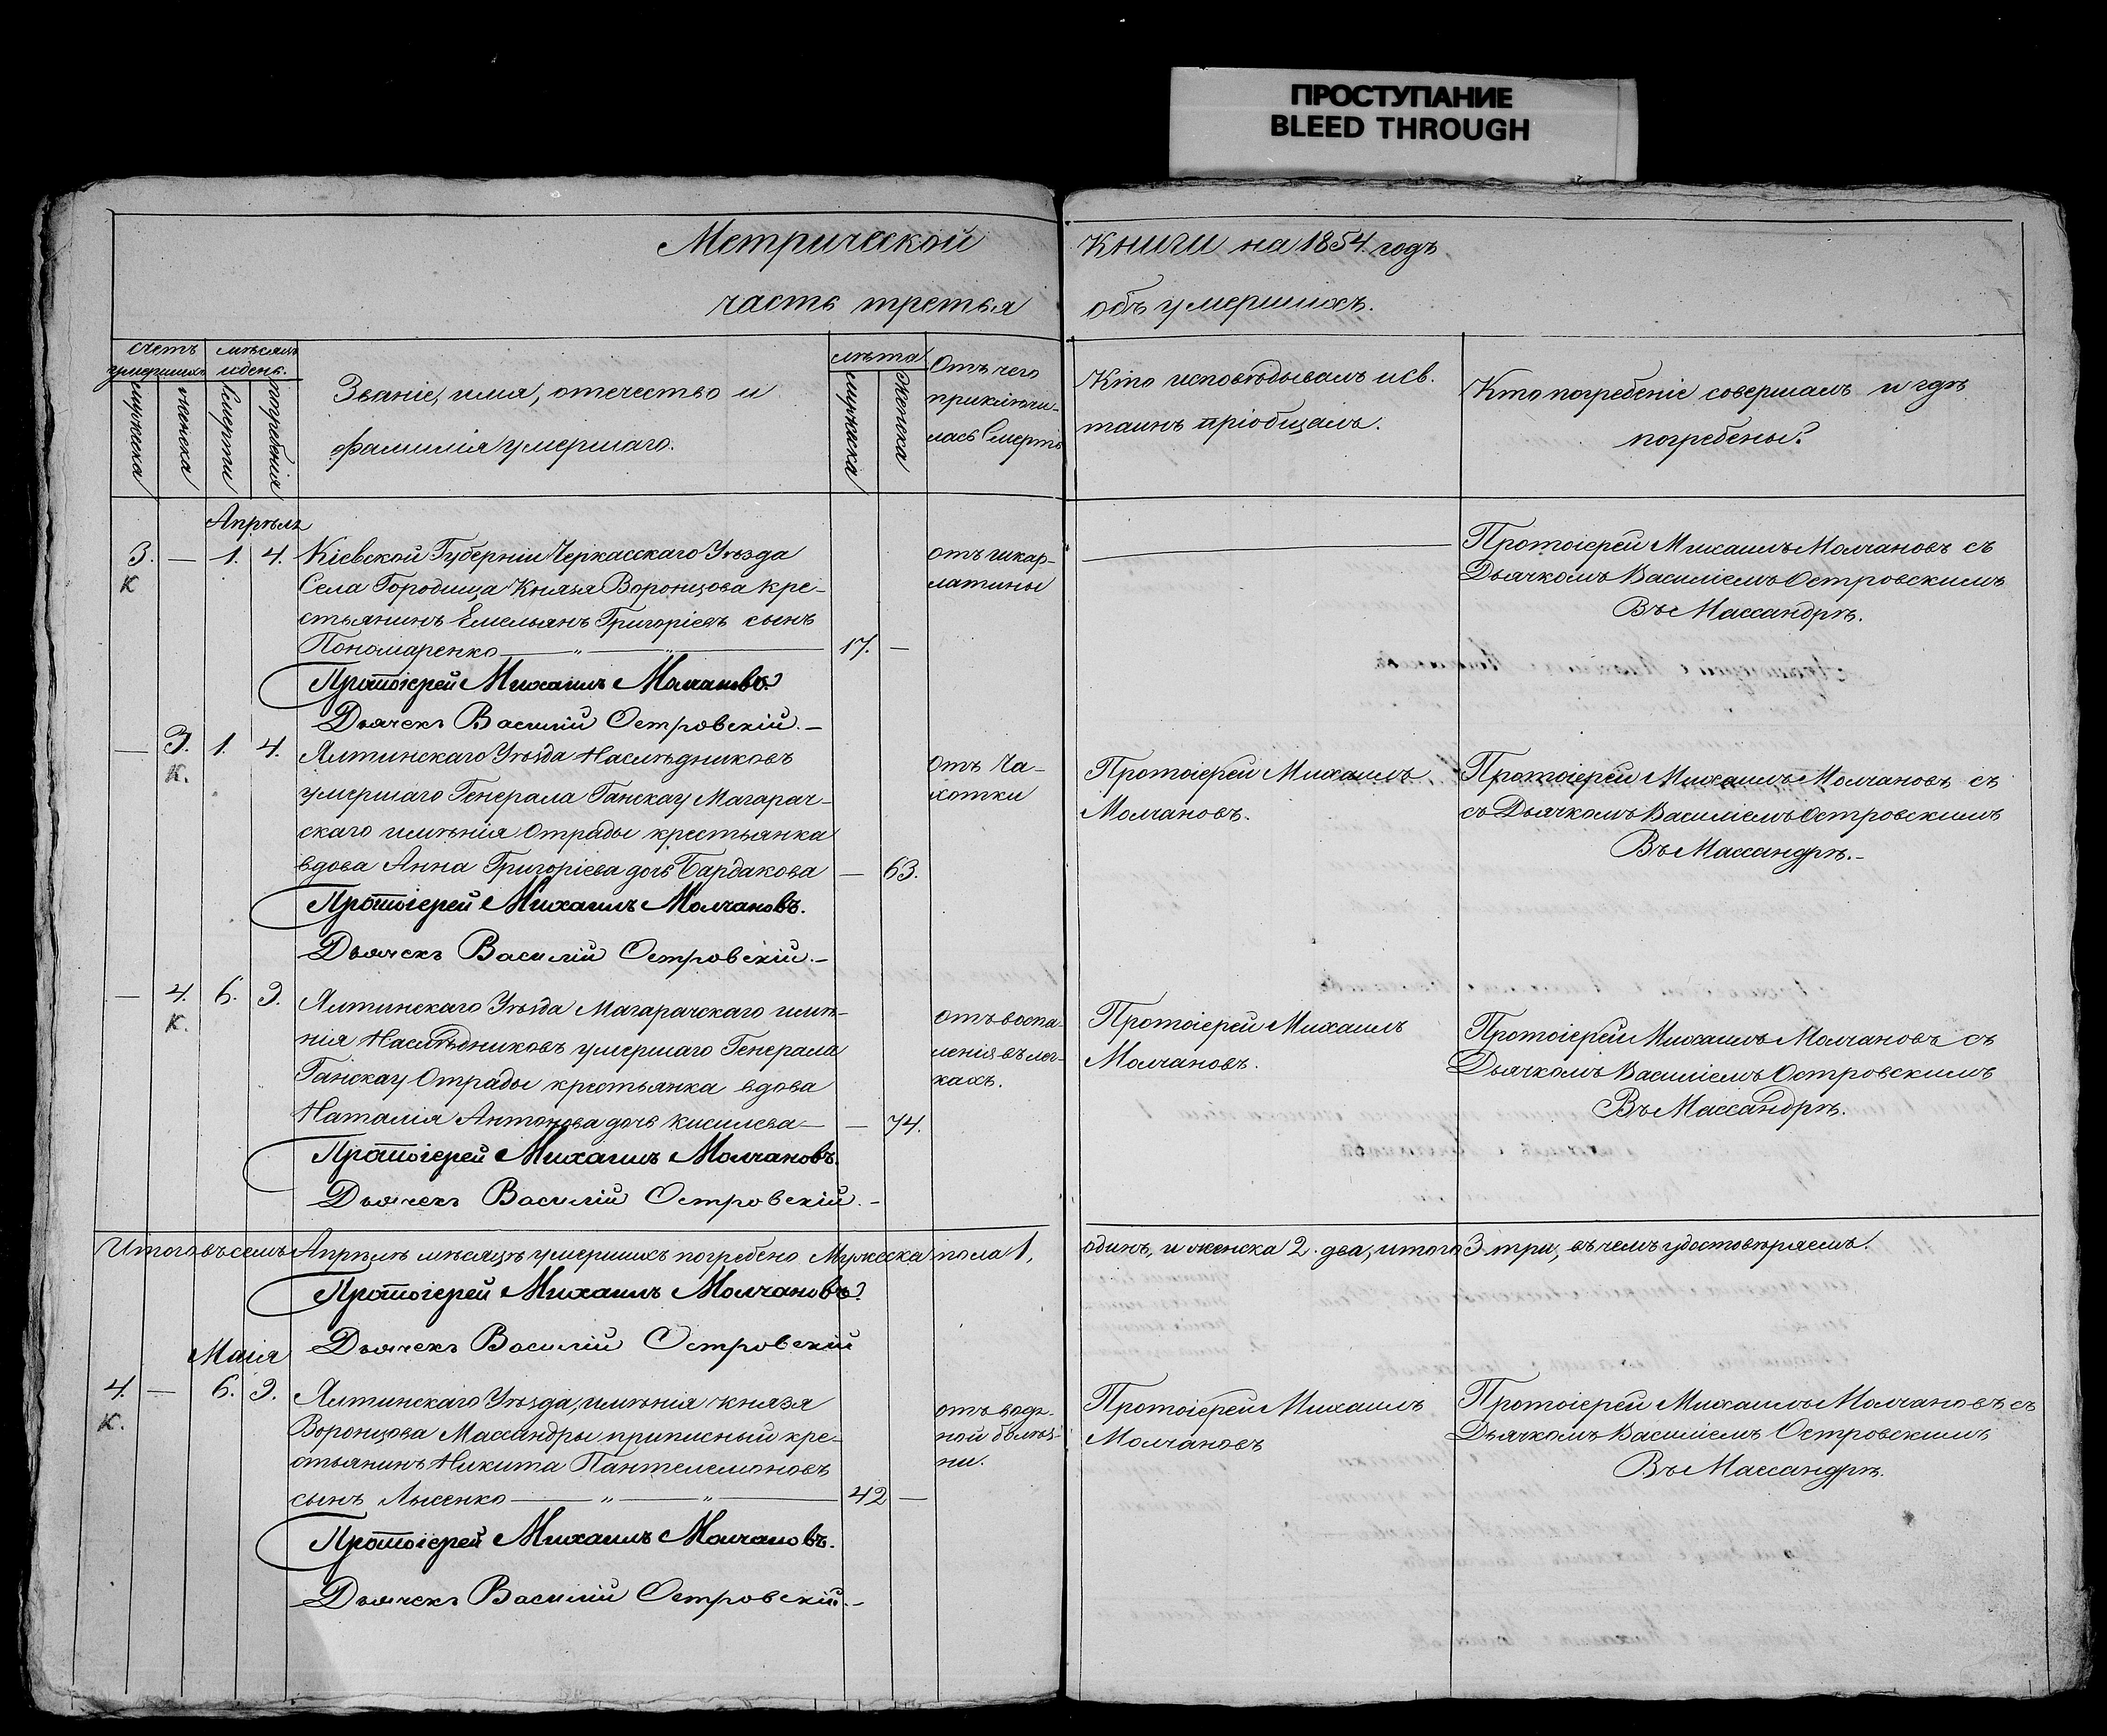 ПРОСТУПАНИЕ
BLEED THROUGH
Метрической книги на 1854. годъ
часть третья объ умершихъ.
счетъ умершихъ
мужеска
женска
мѣсяцъ и день.
смерти
погребенія
Званіе, имя, отечество и
фамилія умершаго.
лѣта
мужеска
женска
Отъ чего
приключи-
лась смерть
Кто исповѣдывалъ и св.
таинъ пріобщалъ.
Кто погребеніе совершалъ и гдѣ
погребены?
Апрѣль
3. — 1. 4.
К
Кіевской Губерніи Черкасскаго Уѣзда
Села Городища Князя Воронцова кре-
стьянинъ Емельянъ Григоріевъ сынъ
Пономаренко — „ — „ — 17. —
отъ скар-
латины
Протоіерей Михаилъ Молчановъ съ
Дьячкомъ Василіемъ Островскимъ
Въ Массандрѣ.
Протоіерей Михаилъ Молчановъ.
Дьячекъ Василій Островскій. —
— 3. 1. 4.
К.
Ялтинскаго Уѣзда Наслѣдниковъ
умершаго Генерала Ганскау Магарач-
скаго имѣнія Отрады крестьянка
вдова Анна Григоріева дочь Бардакова — 63.
отъ Ча-
хотки
Протоіерей Михаилъ
Молчановъ.
Протоіерей Михаилъ Молчановъ съ
съ Дьячкомъ Василіемъ Островскимъ
Въ Массандрѣ. —
Протоіерей Михаилъ Молчановъ.
Дьячекъ Василій Островскій. —
— 4. 6. 9.
К.
Ялтинскаго Уѣзда Магарачскаго имѣ-
нія Наслѣдниковъ умершаго Генерала
Ганскау Отрады крестьянка вдова
Наталія Антонова дочь Кисилева — — 74.
отъ воспа-
ленія въ лег-
кахъ.
Протоіерей Михаилъ
Молчановъ.
Протоіерей Михаилъ Молчановъ съ
Дьячкомъ Василіемъ Островскимъ
Въ Массандрѣ.
Протоіерей Михаилъ Молчановъ.
Дьячекъ Василій Островскій. —
Итого въ семъ Апрѣлѣ мѣсяцѣ умершихъ погребено Мужеска пола 1, одинъ, и женска 2. два, итого 3 три, въ чемъ удостовѣряемъ.
Протоіерей Михаилъ Молчановъ.
Дьячекъ Василій Островскій
Маія
4. — 6. 9.
К.
Ялтинскаго Уѣзда, имѣнія князя
Воронцова Массандры приписный кре-
стьянинъ Никита Пантелемоновъ
сынъ Лысенко — „ — „ — 42 —
отъ водя-
ной болѣз-
ни.
Протоіерей Михаилъ
Молчановъ
Протоіерей Михаилъ Молчановъ съ
Дьячкомъ Василіемъ Островскимъ
Въ Массандрѣ.
Протоіерей Михаилъ Молчановъ.
Дьячекъ Василій Островскій. —